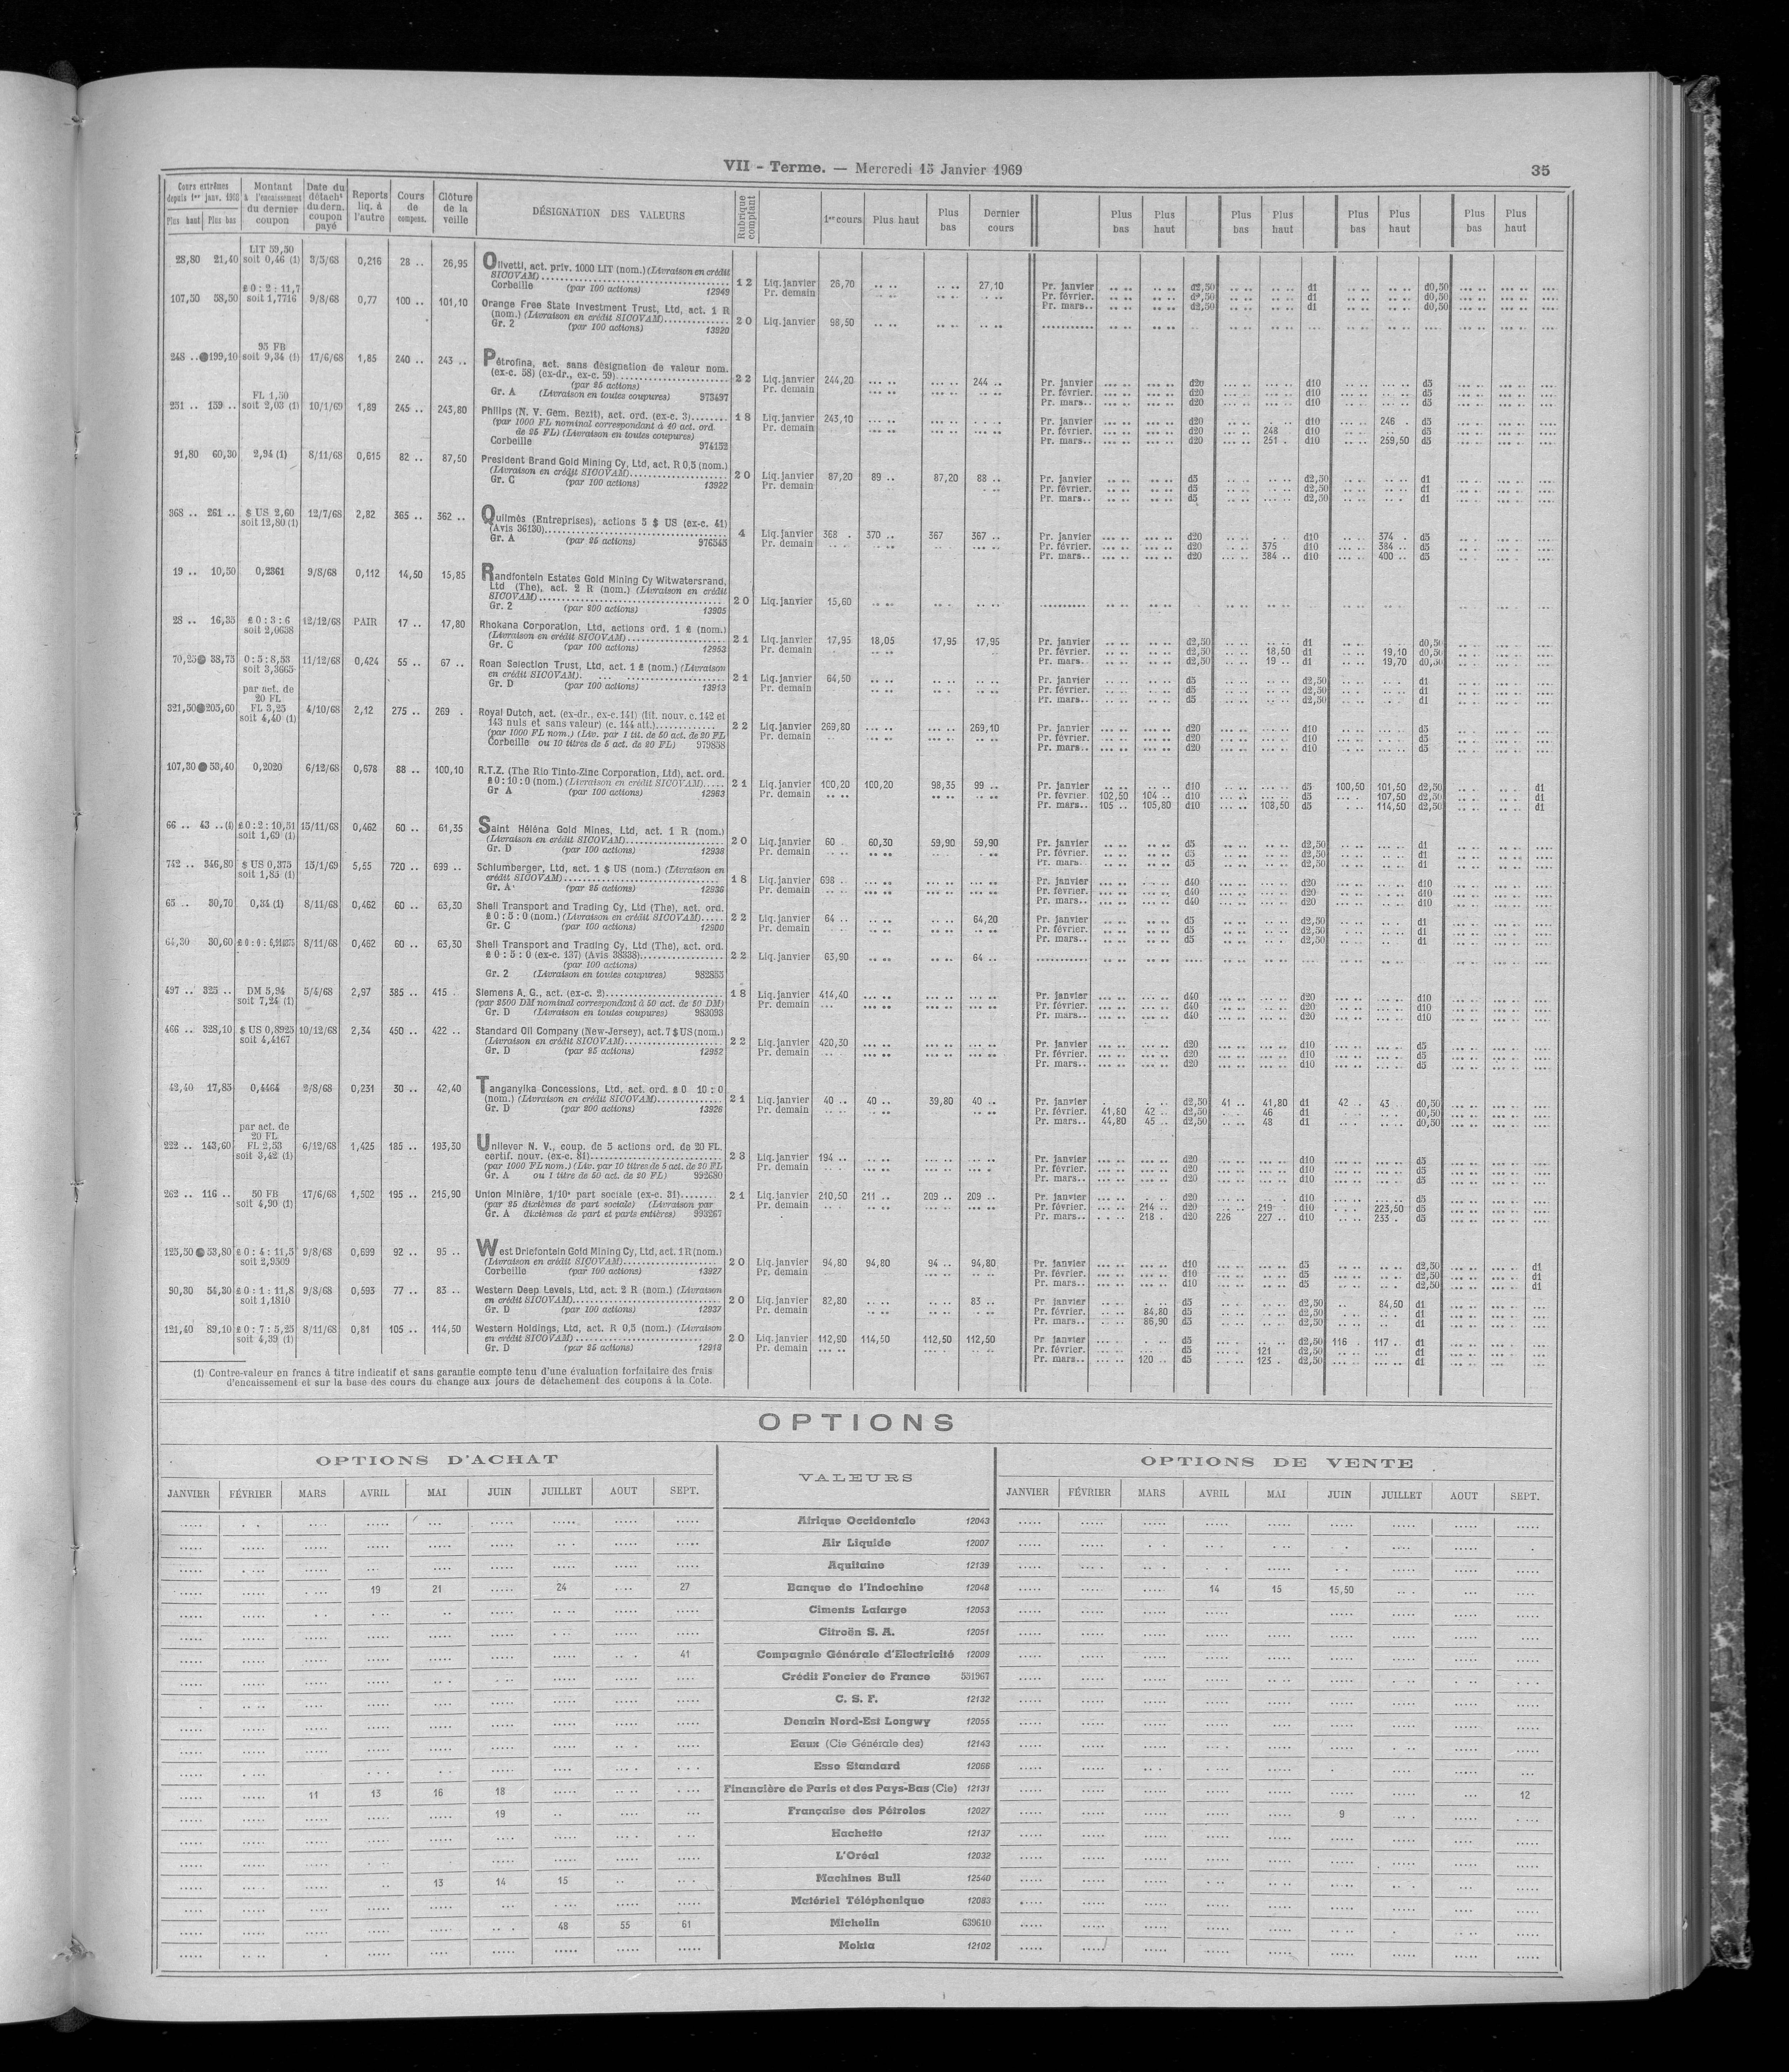 VII - Terme. — Mercredi 15 Janvier 1969
35
Cours extrêmes depuis 1er janv. 1968 Plus haut Plus bas
Montant à l'encaissement du dernier coupon
Date du détacht du dern. coupon payé
Reports liq. à l'autre
Cours de compens.
Clôture de la veille
DÉSIGNATION DES VALEURS
Rubrique comptant
1er cours Plus haut Plus bas Dernier cours
Plus bas Plus haut Plus bas Plus haut Plus bas Plus haut Plus bas Plus haut
LIT 59,50
28,80 21,40 soit 0,46 (1) 3/5/68 0,216 28 .. 26,95 Olivetti, act. priv. 1000 LIT (nom.) (Livraison en crédit
SICOVAM)
Corbeille (par 100 actions) 12949 12 Liq. janvier 26,70 27,10 Pr. janvier d2,50 d1 d0,50
Pr. demain Pr. février. d2,50 d1 d0,50
Pr. mars.. d2,50 d1 d0,50
£ 0 : 2 : 11,7
107,50 58,50 soit 1,7716 9/8/68 0,77 100 .. 101,10 Orange Free State Investment Trust, Ltd, act. 1 R
(nom.) (Livraison en crédit SICOVAM)
Gr. 2 (par 100 actions) 13920 20 Liq. janvier 98,50
95 FB
248 .. 199,10 soit 9,34 (1) 17/6/68 1,85 240 .. 243 .. Pétrofina, act. sans désignation de valeur nom.
(ex-c. 58) (ex-dr., ex-c. 59)
(par 25 actions) 22 Liq. janvier 244,20 244 .. Pr. janvier d20 d10 d5
Gr. A (Livraison en toutes coupures) 973497 Pr. demain Pr. février. d20 d10 d5
Pr. mars.. d20 d10 d5
FL 1,50
251 .. 159 .. soit 2,03 (1) 10/1/69 1,89 245 .. 243,80 Philips (N. V. Gem. Bezit), act. ord. (ex-c. 3) 18 Liq. janvier 243,10 Pr. janvier d20 d10 246 . d5
(par 1000 FL nominal correspondant à 40 act. ord. Pr. demain Pr. février. d20 248 d10 d5
de 25 FL) (Livraison en toutes coupures) Pr. mars.. d20 251 . d10 259,50 d5
Corbeille 974152
91,80 60,30 2,94 (1) 8/11/68 0,615 82 .. 87,50 President Brand Gold Mining Cy, Ltd, act. R 0,5 (nom.)
(Livraison en crédit SICOVAM) 20 Liq. janvier 87,20 89 .. 87,20 88 .. Pr. janvier d5 d2,50 d1
Gr. C (par 100 actions) 13922 Pr. demain Pr. février. d5 d2,50 d1
Pr. mars.. d5 d2,50 d1
368 .. 261 .. $ US 2,60 12/7/68 2,82 365 .. 362 .. Quilmès (Entreprises), actions 5 $ US (ex-c. 41)
soit 12,80 (1) (Avis 36130) 4 Liq. janvier 368 . 370 .. 367 367 .. Pr. janvier d20 d10 374 . d5
Gr. A (par 25 actions) 976545 Pr. demain Pr. février. d20 375 d10 384 .. d5
Pr. mars.. d20 384 .. d10 400 .. d5
19 .. 10,50 0,2361 9/8/68 0,112 14,50 15,85 Randfontein Estates Gold Mining Cy Witwatersrand,
Ltd (The), act. 2 R (nom.) (Livraison en crédit
SICOVAM) 20 Liq. janvier 15,60
Gr. 2 (par 200 actions) 13905
28 .. 16,35 £ 0 : 3 : 6 12/12/68 PAIR 17 .. 17,80 Rhokana Corporation, Ltd, actions ord. 1 £ (nom.)
soit 2,0638 (Livraison en crédit SICOVAM) 21 Liq. janvier 17,95 18,05 17,95 17,95 Pr. janvier d2,50 d1 d0,50
Gr. C (par 100 actions) 12953 Pr. demain Pr. février. d2,50 18,50 d1 19,10 d0,50
Pr. mars.. d2,50 19 .. d1 19,70 d0,50
70,25 38,75 0 : 5 : 8,53 11/12/68 0,424 55 .. 67 .. Roan Selection Trust, Ltd, act. 1 £ (nom.) (Livraison
soit 3,3665 en crédit SICOVAM). 21 Liq. janvier 64,50 Pr. janvier d5 d2,50 d1
Gr. D (par 100 actions) 13913 Pr. demain Pr. février. d5 d2,50 d1
Pr. mars.. d5 d2,50 d1
par act. de
20 FL
321,50 205,60 FL 3,25 4/10/68 2,12 275 .. 269 . Royal Dutch, act. (ex-dr., ex-c. 141) (tit. nouv. c. 142 et
soit 4,40 (1) 143 nuls et sans valeur) (c. 144 att.) 22 Liq. janvier 269,80 269,10 Pr. janvier d20 d10 d5
(par 1000 FL nom.) (Liv. par 1 tit. de 50 act. de 20 FL Pr. demain Pr. février. d20 d10 d5
Corbeille ou 10 titres de 5 act. de 20 FL) 979858 Pr. mars.. d20 d10 d5
107,30 53,40 0,2020 6/12/68 0,678 88 .. 100,10 R.T.Z. (The Rio Tinto-Zinc Corporation, Ltd), act. ord.
£ 0 : 10 : 0 (nom.) (Livraison en crédit SICOVAM) 21 Liq. janvier 100,20 100,20 98,35 99 .. Pr. janvier d10 d5 100,50 101,50 d2,50 d1
Gr A (par 100 actions) 12963 Pr. demain Pr. février 102,50 104 .. d10 d5 107,50 d2,50 d1
Pr. mars.. 105 .. 105,80 d10 108,50 d5 114,50 d2,50 d1
66 .. 43 .. (1) £ 0 : 2 : 10,51 15/11/68 0,462 60 .. 61,35 Saint Héléna Gold Mines, Ltd, act. 1 R (nom.)
soit 1,69 (1) (Livraison en crédit SICOVAM) 20 Liq. janvier 60 60,30 59,90 59,90 Pr. janvier d5 d2,50 d1
Gr. D (par 100 actions) 12938 Pr. demain Pr. février. d5 d2,50 d1
Pr. mars. d5 d2,50 d1
742 .. 346,80 $ US 0,375 15/1/69 5,55 720 .. 699 .. Schlumberger, Ltd, act. 1 $ US (nom.) (Livraison en
soit 1,85 (1) crédit SICOVAM) 18 Liq. janvier 698 . Pr. janvier d40 d20 d10
Gr. A (par 25 actions) 12936 Pr. demain Pr. février. d40 d20 d10
Pr. mars.. d40 d20 d10
65 .. 30,70 0,34 (1) 8/11/68 0,462 60 .. 63,30 Shell Transport and Trading Cy, Ltd (The), act. ord.
£ 0 : 5 : 0 (nom.) (Livraison en crédit SICOVAM) 22 Liq. janvier 64 .. 64,20 Pr. janvier d5 d2,50 d1
Gr. C (par 100 actions) 12900 Pr. demain Pr. février. d5 d2,50 d1
Pr. mars.. d5 d2,50 d1
64,30 30,60 8/11/68 0,462 60 .. 63,30 Shell Transport and Trading Cy, Ltd (The), act. ord.
£ 0 : 5 : 0 (ex-c. 137) (Avis 38338) 22 Liq. janvier 63,90 64 ..
(par 100 actions)
Gr. 2 (Livraison en toutes coupures) 982855
497 .. 325 .. DM 5,94 5/4/68 2,97 385 .. 415 Siemens A. G., act. (ex-c. 2) 18 Liq. janvier 414,40 Pr. janvier d40 d20 d10
soit 7,24 (1) (par 2500 DM nominal correspondant à 50 act. de 50 DM) Pr. demain Pr. février. d40 d20 d10
Gr. D (Livraison en toutes coupures) 983093 Pr. mars.. d40 d20 d10
466 .. 328,10 $ US 0,8925 10/12/68 2,34 450 .. 422 .. Standard Oil Company (New-Jersey), act. 7 $ US (nom.)
soit 4,4167 (Livraison en crédit SICOVAM) 22 Liq. janvier 420,30 Pr. janvier d20 d10 d5
Gr. D (par 25 actions) 12952 Pr. demain Pr. février. d20 d10 d5
Pr. mars.. d20 d10 d5
42,40 17,85 0,4464 2/8/68 0,231 30 .. 42,40 Tanganyika Concessions, Ltd, act. ord. £ 0 10 : 0
(nom.) (Livraison en crédit SICOVAM) 21 Liq. janvier 40 .. 40 .. 39,80 40 .. Pr. janvier d2,50 41 .. 41,80 d1 42 .. 43 d0,50
Gr. D (par 200 actions) 13926 Pr. demain Pr. février. 41,80 42 .. d2,50 46 d1 d0,50
Pr. mars.. 44,80 45 .. d2,50 48 d1 d0,50
par act. de
20 FL
222 .. 143,60 FL 2,53 6/12/68 1,425 185 .. 193,30 Unilever N. V., coup. de 5 actions ord. de 20 FL.
soit 3,42 (1) certif. nouv. (ex-c. 81) 23 Liq. janvier 194 .. Pr. janvier d20 d10 d5
(par 1000 FL nom.) (Liv. par 10 titres de 5 act. de 20 FL Pr. demain Pr. février. d20 d10 d5
Gr. A ou 1 titre de 50 act. de 20 FL) 992680 Pr. mars.. d20 d10 d5
262 .. 116 .. 50 FB 17/6/68 1,502 195 .. 215,90 Union Minière, 1/10e part sociale (ex-c. 31) 21 Liq. janvier 210,50 211 .. 209 .. 209 .. Pr. janvier d20 d10 d5
soit 4,90 (1) (par 25 dixièmes de part sociale) (Livraison par Pr. demain Pr. février. 214 .. d20 219 d10 223,50 d5
Gr. A dixièmes de part et parts entières) 993267 Pr. mars.. 218 . d20 226 227 .. d10 233 . d5
125,50 53,80 £ 0 : 4 : 11,5 9/8/68 0,699 92 .. 95 .. West Driefontein Gold Mining Cy, Ltd, act. 1 R (nom.)
soit 2,9509 (Livraison en crédit SICOVAM) 20 Liq. janvier 94,80 94,80 94 .. 94,80 Pr. janvier d10 d5 d2,50 d1
Corbeille (par 100 actions) 13927 Pr. demain Pr. février. d10 d5 d2,50 d1
Pr. mars.. d10 d5 d2,50 d1
90,30 54,30 £ 0 : 1 : 11,8 9/8/68 0,593 77 .. 83 .. Western Deep Levels, Ltd, act. 2 R (nom.) (Livraison
soit 1,1810 en crédit SICOVAM) 20 Liq. janvier 82,80 83 .. Pr janvier d5 d2,50 84,50 d1
Gr. D (par 100 actions) 12937 Pr. demain Pr. février. 84,80 d5 d2,50 d1
Pr. mars.. 86,90 d5 d2,50 d1
121,40 89,10 £ 0 : 7 : 5,25 8/11/68 0,81 105 .. 114,50 Western Holdings, Ltd, act. R 0,5 (nom.) (Livraison
soit 4,39 (1) en crédit SICOVAM) 20 Liq. janvier 112,90 114,50 112,50 112,50 Pr janvier d5 d2,50 116 .. 117 .. d1
Gr. D (par 25 actions) 12918 Pr. demain Pr. février. d5 121 d2,50 d1
Pr. mars.. 120 .. d5 123 . d2,50 d1
(1) Contre-valeur en francs à titre indicatif et sans garantie compte tenu d'une évaluation forfaitaire des frais
d'encaissement et sur la base des cours du change aux jours de détachement des coupons à la Cote.
OPTIONS
OPTIONS D'ACHAT
VALEURS
OPTIONS DE VENTE
JANVIER FÉVRIER MARS AVRIL MAI JUIN JUILLET AOUT SEPT.
JANVIER FÉVRIER MARS AVRIL MAI JUIN JUILLET AOUT SEPT.
Afrique Occidentale 12043
Air Liquide 12007
Aquitaine 12139
19 21 24 27 Banque de l'Indochine 12048 14 15 15,50
Ciments Lafarge 12053
Citroën S. A. 12051
41 Compagnie Générale d'Electricité 12009
Crédit Foncier de France 531967
C. S. F. 12132
Denain Nord-Est Longwy 12055
Eaux (Cie Générale des) 12143
Esso Standard 12066
11 13 16 18 Financière de Paris et des Pays-Bas (Cie) 12131 12
19 Française des Pétroles 12027 9
Hachette 12137
L'Oréal 12032
13 14 15 Machines Bull 12540
Matériel Téléphonique 12083
48 55 61 Michelin 639610
Mokta 12102